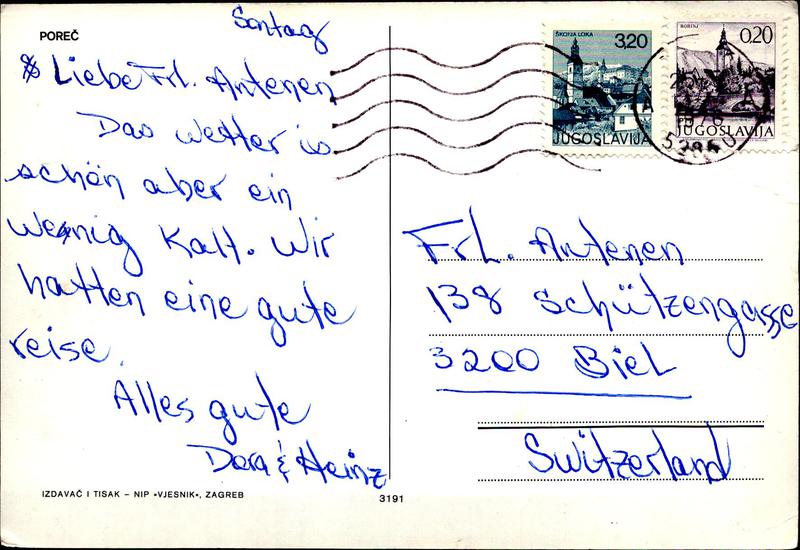 POREČ
Sontag
Liebe Frl. Antenen
Das wetter is
schön aber ein
wenig Kalt. Wir
hatten eine gute
reise.
Alles gute
Dora & Heinz
IZDAVAČ I TISAK – NIP »VJESNIK«, ZAGREB
3191
ŠKOFJA LOKA
3,20
JUGOSLAVIJA
0,20
JUGOSLAVIJA
Frl. Antenen
138 Schützengasse
3200 Biel
Switzerland